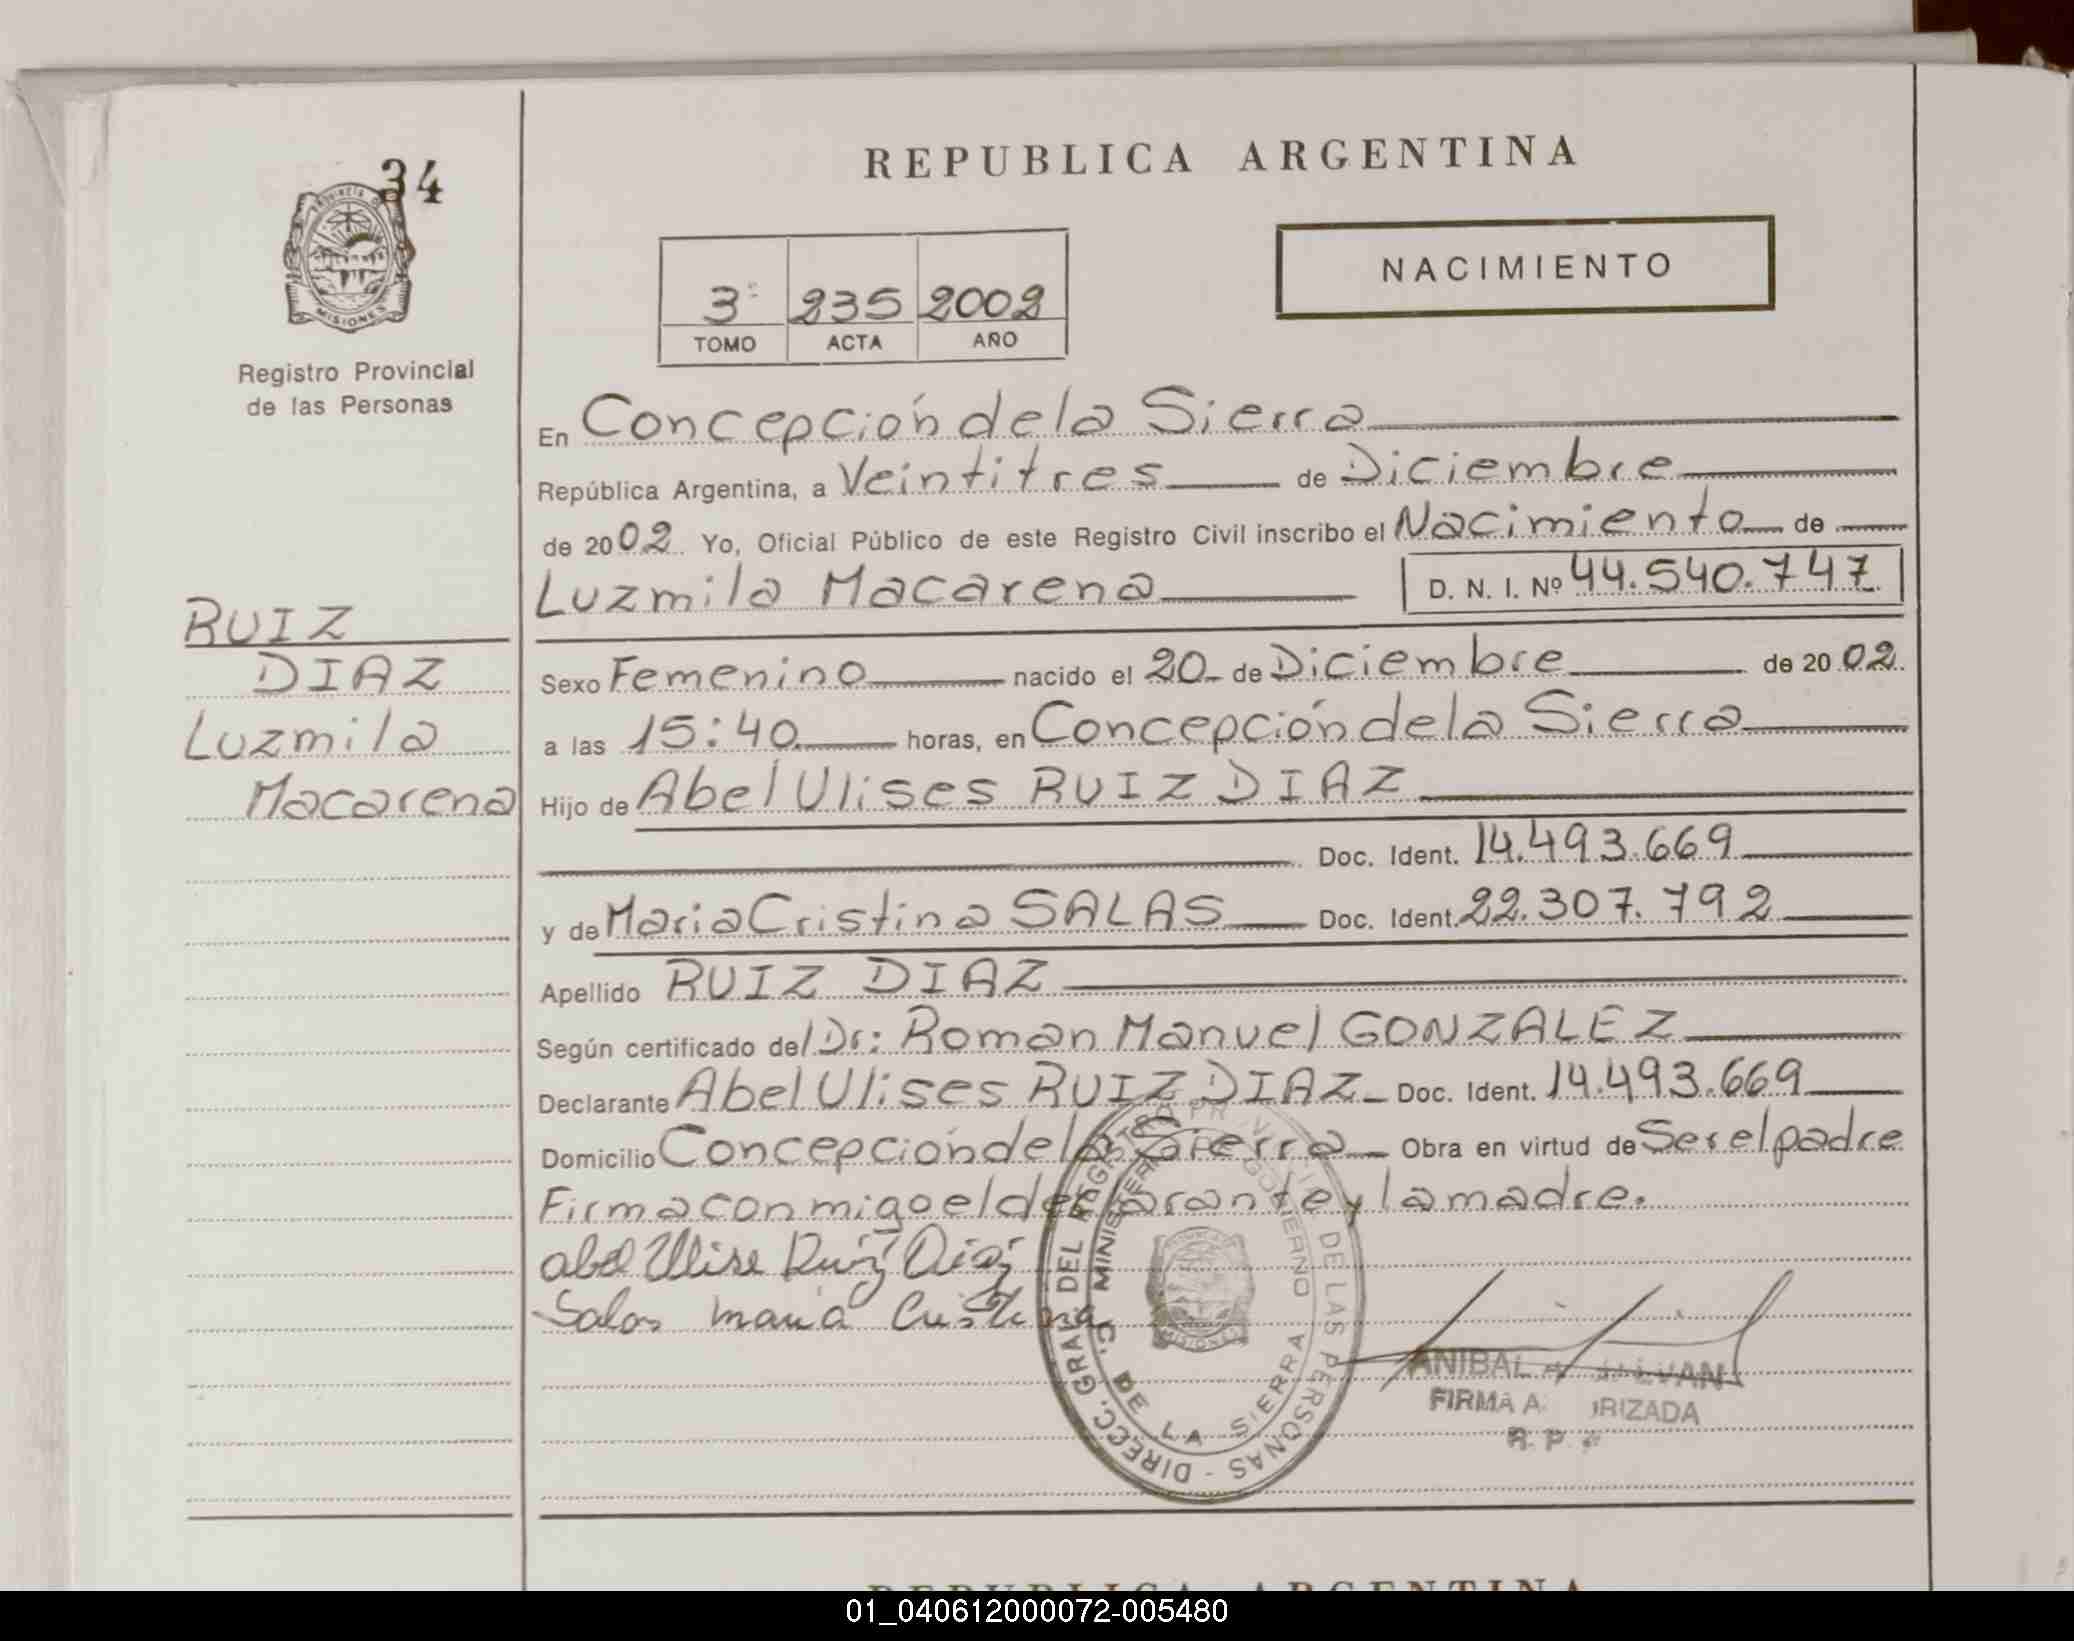 34
PROVINCIA DE
MISIONES
Registro Provincial
de las Personas
REPUBLICA ARGENTINA
3º 235 2002
TOMO ACTA AÑO
NACIMIENTO
En Concepción de la Sierra
República Argentina, a Veintitres de Diciembre
de 2002. Yo, Oficial Público de este Registro Civil inscribo el Nacimiento de
Luzmila Macarena D. N. I. Nº 44.540.747
RUIZ
DIAZ
Luzmila
Macarena
Sexo Femenino nacido el 20 de Diciembre de 2002.
a las 15:40 horas, en Concepción de la Sierra
Hijo de Abel Ulises RUIZ DIAZ
Doc. Ident. 14.493.669
y de Maria Cristina SALAS Doc. Ident. 22.307.792
Apellido RUIZ DIAZ
Según certificado del Dr: Roman Manuel GONZALEZ
Declarante Abel Ulises RUIZ DIAZ Doc. Ident. 14.493.669
Domicilio Concepción de la Sierra Obra en virtud de Ser el padre
Firma conmigo el declarante y la madre.
abel Ulise Ruiz Diaz
Salas maria Cristina
DIRECC. GRAL. DEL REGISTRO PROVINCIAL DE LAS PERSONAS -
MINISTERIO DE GOBIERNO
C. DE LA SIERRA
MISIONES
ANIBAL GALVAN
FIRMA AUTORIZADA
R. P.
REPUBLICA ARGENTINA
01_040612000072-005480